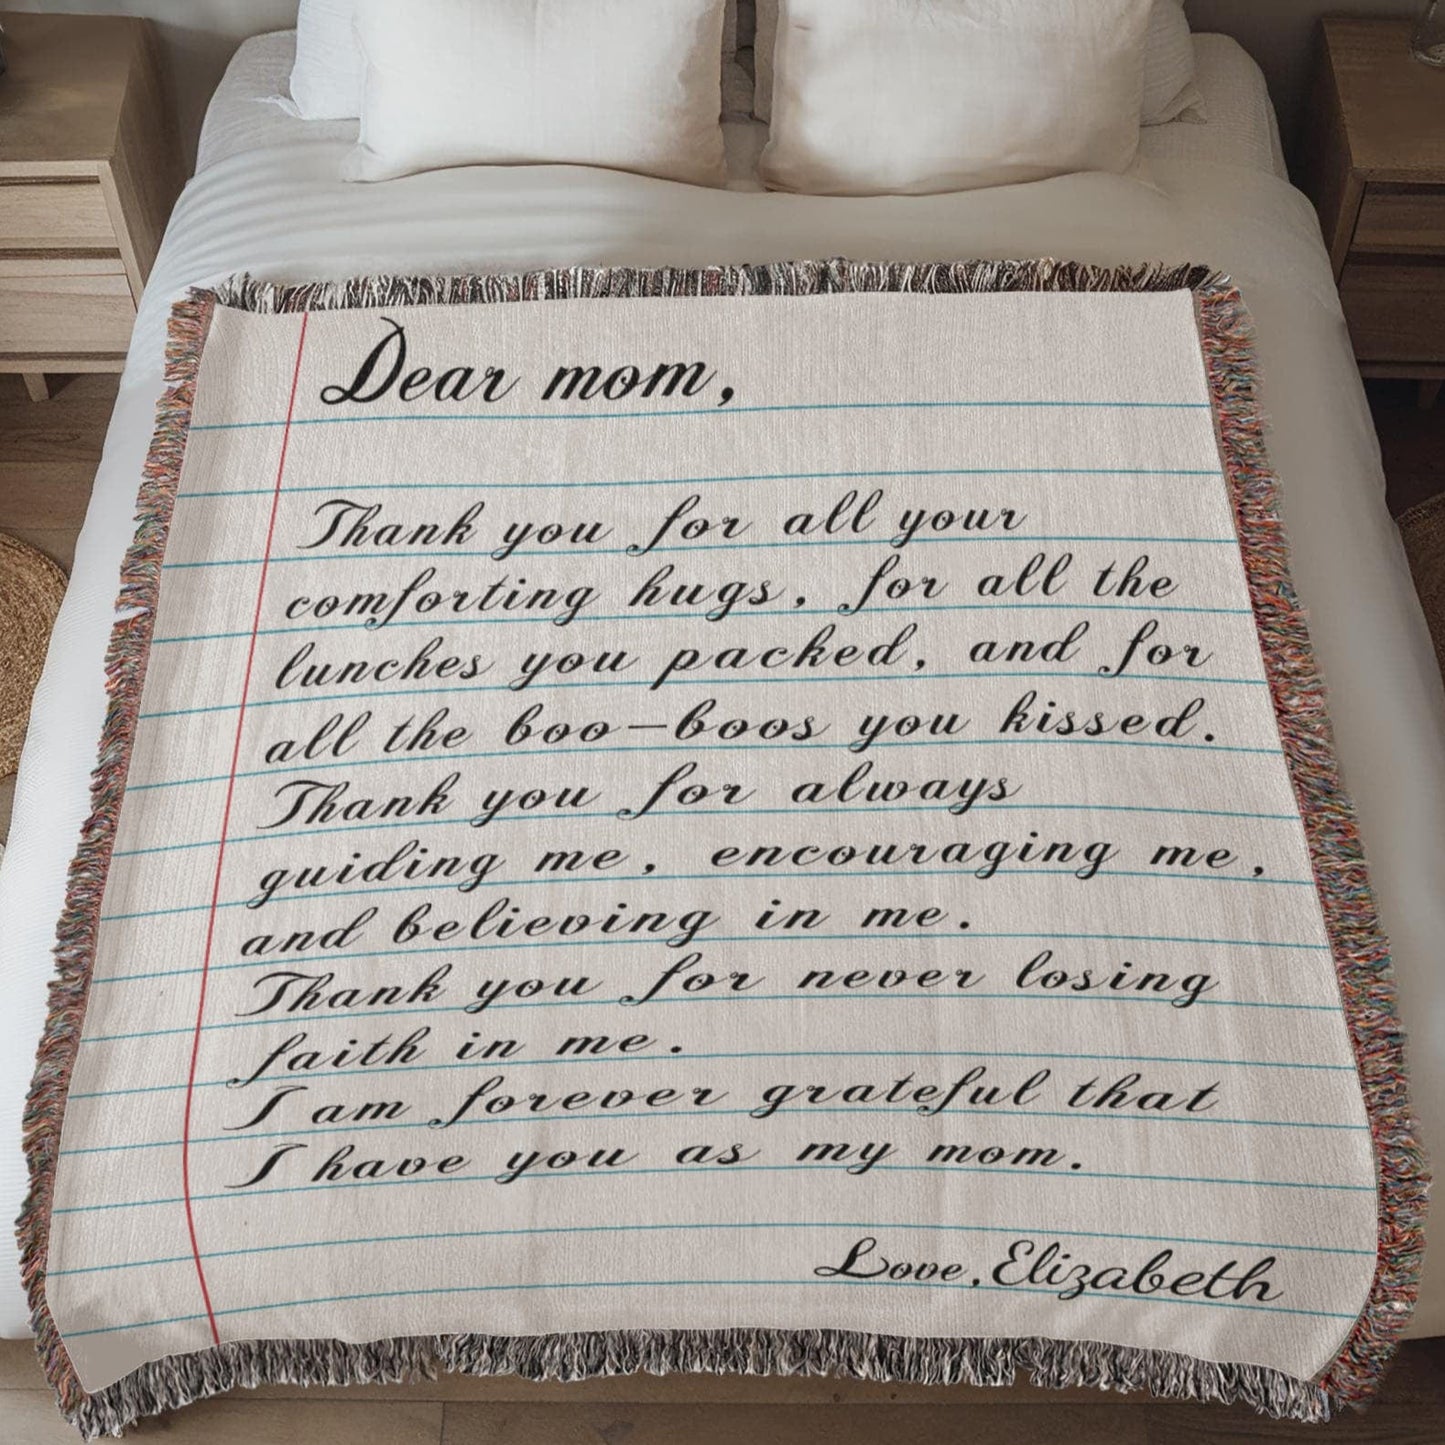 Dear mom,
Thank you for all your
comforting hugs, for all the
lunches you packed, and for
all the boo-boos you kissed.
Thank you for always
guiding me, encouraging me,
and believing in me.
Thank you for never losing
faith in me.
I am forever grateful that
I have you as my mom.
Love, Elizabeth